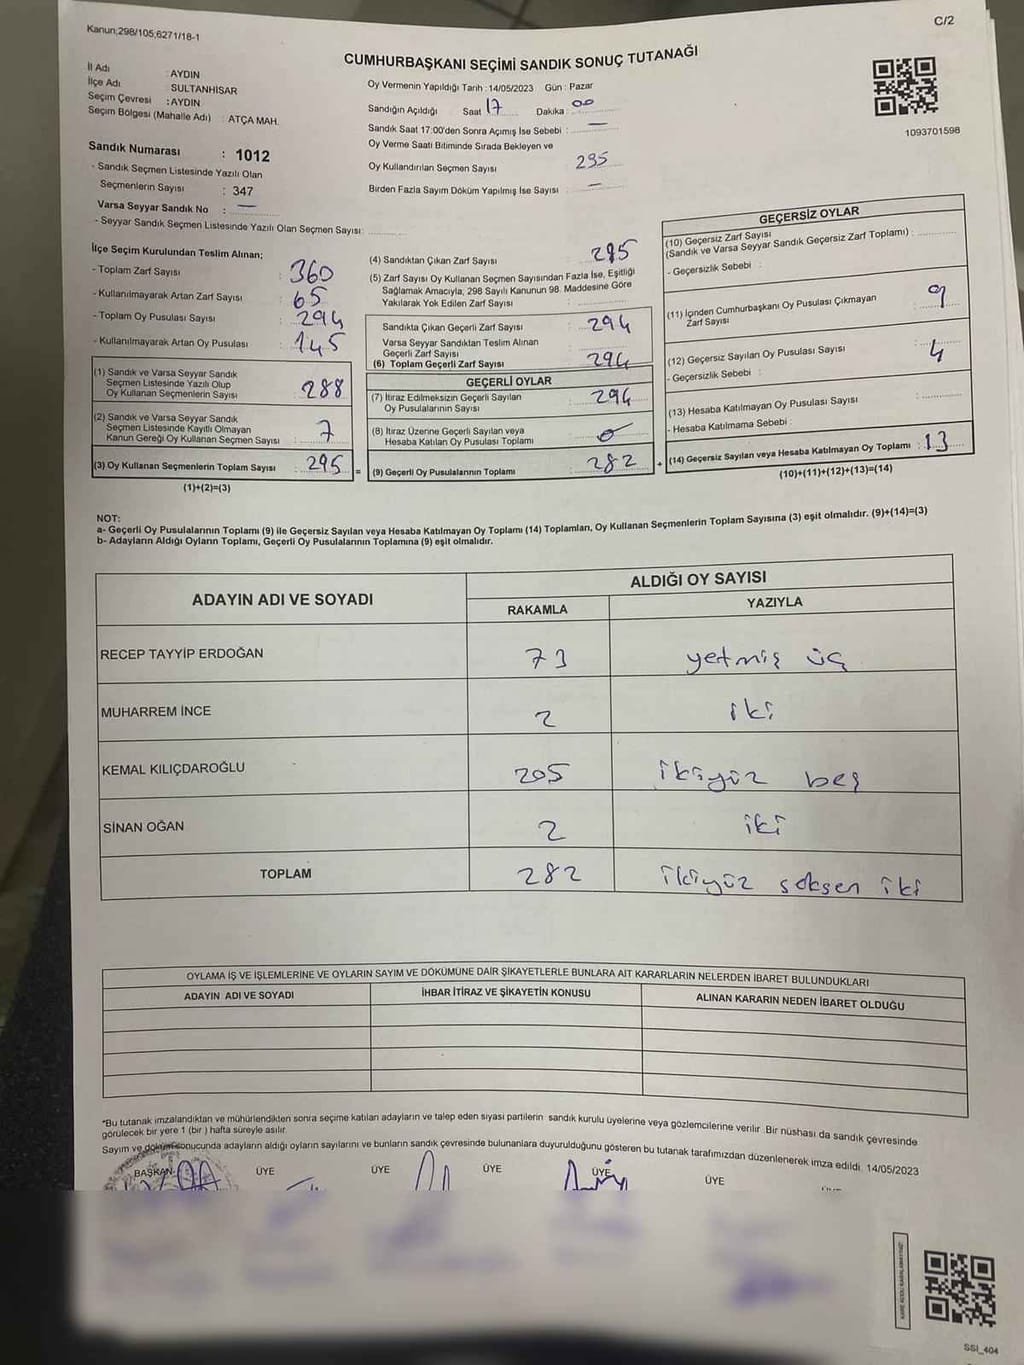 Kanun;298/105,6271/18-1
C/2
CUMHURBAŞKANI SEÇİMİ SANDIK SONUÇ TUTANAĞI
İl Adı : AYDIN
İlçe Adı : SULTANHİSAR
Seçim Çevresi : AYDIN
Seçim Bölgesi (Mahalle Adı) : ATÇA MAH.
Oy Vermenin Yapıldığı Tarih : 14/05/2023 Gün : Pazar
Sandığın Açıldığı Saat 17 Dakika : 00
Sandık Saat 17:00'den Sonra Açımış İse Sebebi : —
Oy Verme Saati Bitiminde Sırada Bekleyen ve
Oy Kullandırılan Seçmen Sayısı 295
Birden Fazla Sayım Döküm Yapılmış İse Sayısı : —
1093701598
Sandık Numarası : 1012
- Sandık Seçmen Listesinde Yazılı Olan
Seçmenlerin Sayısı : 347
Varsa Seyyar Sandık No : —
- Seyyar Sandık Seçmen Listesinde Yazılı Olan Seçmen Sayısı:
İlçe Seçim Kurulundan Teslim Alınan;
- Toplam Zarf Sayısı : 360
- Kullanılmayarak Artan Zarf Sayısı : 65
- Toplam Oy Pusulası Sayısı : 294
- Kullanılmayarak Artan Oy Pusulası : 145
(1) Sandık ve Varsa Seyyar Sandık
Seçmen Listesinde Yazılı Olup
Oy Kullanan Seçmenlerin Sayısı : 288
(2) Sandık ve Varsa Seyyar Sandık
Seçmen Listesinde Kayıtlı Olmayan
Kanun Gereği Oy Kullanan Seçmen Sayısı : 7
(3) Oy Kullanan Seçmenlerin Toplam Sayısı : 295 =
(1)+(2)=(3)
(4) Sandıktan Çıkan Zarf Sayısı : 295
(5) Zarf Sayısı Oy Kullanan Seçmen Sayısından Fazla İse, Eşitliği
Sağlamak Amacıyla, 298 Sayılı Kanunun 98. Maddesine Göre
Yakılarak Yok Edilen Zarf Sayısı :
Sandıkta Çıkan Geçerli Zarf Sayısı : 294
Varsa Seyyar Sandıktan Teslim Alınan
Geçerli Zarf Sayısı :
(6) Toplam Geçerli Zarf Sayısı : 294
GEÇERLİ OYLAR
(7) İtiraz Edilmeksizin Geçerli Sayılan
Oy Pusulalarının Sayısı : 294
(8) İtiraz Üzerine Geçerli Sayılan veya
Hesaba Katılan Oy Pusulası Toplamı : 0
(9) Geçerli Oy Pusulalarının Toplamı : 282 +
GEÇERSİZ OYLAR
(10) Geçersiz Zarf Sayısı
(Sandık ve Varsa Seyyar Sandık Geçersiz Zarf Toplamı) :
- Geçersizlik Sebebi :
(11) İçinden Cumhurbaşkanı Oy Pusulası Çıkmayan
Zarf Sayısı : 9
(12) Geçersiz Sayılan Oy Pusulası Sayısı : 4
- Geçersizlik Sebebi :
(13) Hesaba Katılmayan Oy Pusulası Sayısı :
- Hesaba Katılmama Sebebi :
(14) Geçersiz Sayılan veya Hesaba Katılmayan Oy Toplamı : 13
(10)+(11)+(12)+(13)=(14)
NOT:
a- Geçerli Oy Pusulalarının Toplamı (9) ile Geçersiz Sayılan veya Hesaba Katılmayan Oy Toplamı (14) Toplamları, Oy Kullanan Seçmenlerin Toplam Sayısına (3) eşit olmalıdır. (9)+(14)=(3)
b- Adayların Aldığı Oyların Toplamı, Geçerli Oy Pusulalarının Toplamına (9) eşit olmalıdır.
ADAYIN ADI VE SOYADI
ALDIĞI OY SAYISI
RAKAMLA YAZIYLA
RECEP TAYYİP ERDOĞAN 73 yetmiş üç
MUHARREM İNCE 2 iki
KEMAL KILIÇDAROĞLU 205 ikiyüz beş
SİNAN OĞAN 2 iki
TOPLAM 282 ikiyüz seksen iki
OYLAMA İŞ VE İŞLEMLERİNE VE OYLARIN SAYIM VE DÖKÜMÜNE DAİR ŞİKAYETLERLE BUNLARA AİT KARARLARIN NELERDEN İBARET BULUNDUKLARI
ADAYIN ADI VE SOYADI İHBAR İTİRAZ VE ŞİKAYETİN KONUSU ALINAN KARARIN NEDEN İBARET OLDUĞU
*Bu tutanak imzalandıktan ve mühürlendikten sonra seçime katılan adayların ve talep eden siyasi partilerin sandık kurulu üyelerine veya gözlemcilerine verilir .Bir nüshası da sandık çevresinde
görülecek bir yere 1 (bir ) hafta süreyle asılır.
Sayım ve döküm sonucunda adayların aldığı oyların sayılarını ve bunların sandık çevresinde bulunanlara duyurulduğunu gösteren bu tutanak tarafımızdan düzenlenerek imza edildi. 14/05/2023
BAŞKAN ÜYE ÜYE ÜYE ÜYE ÜYE
SSI_404